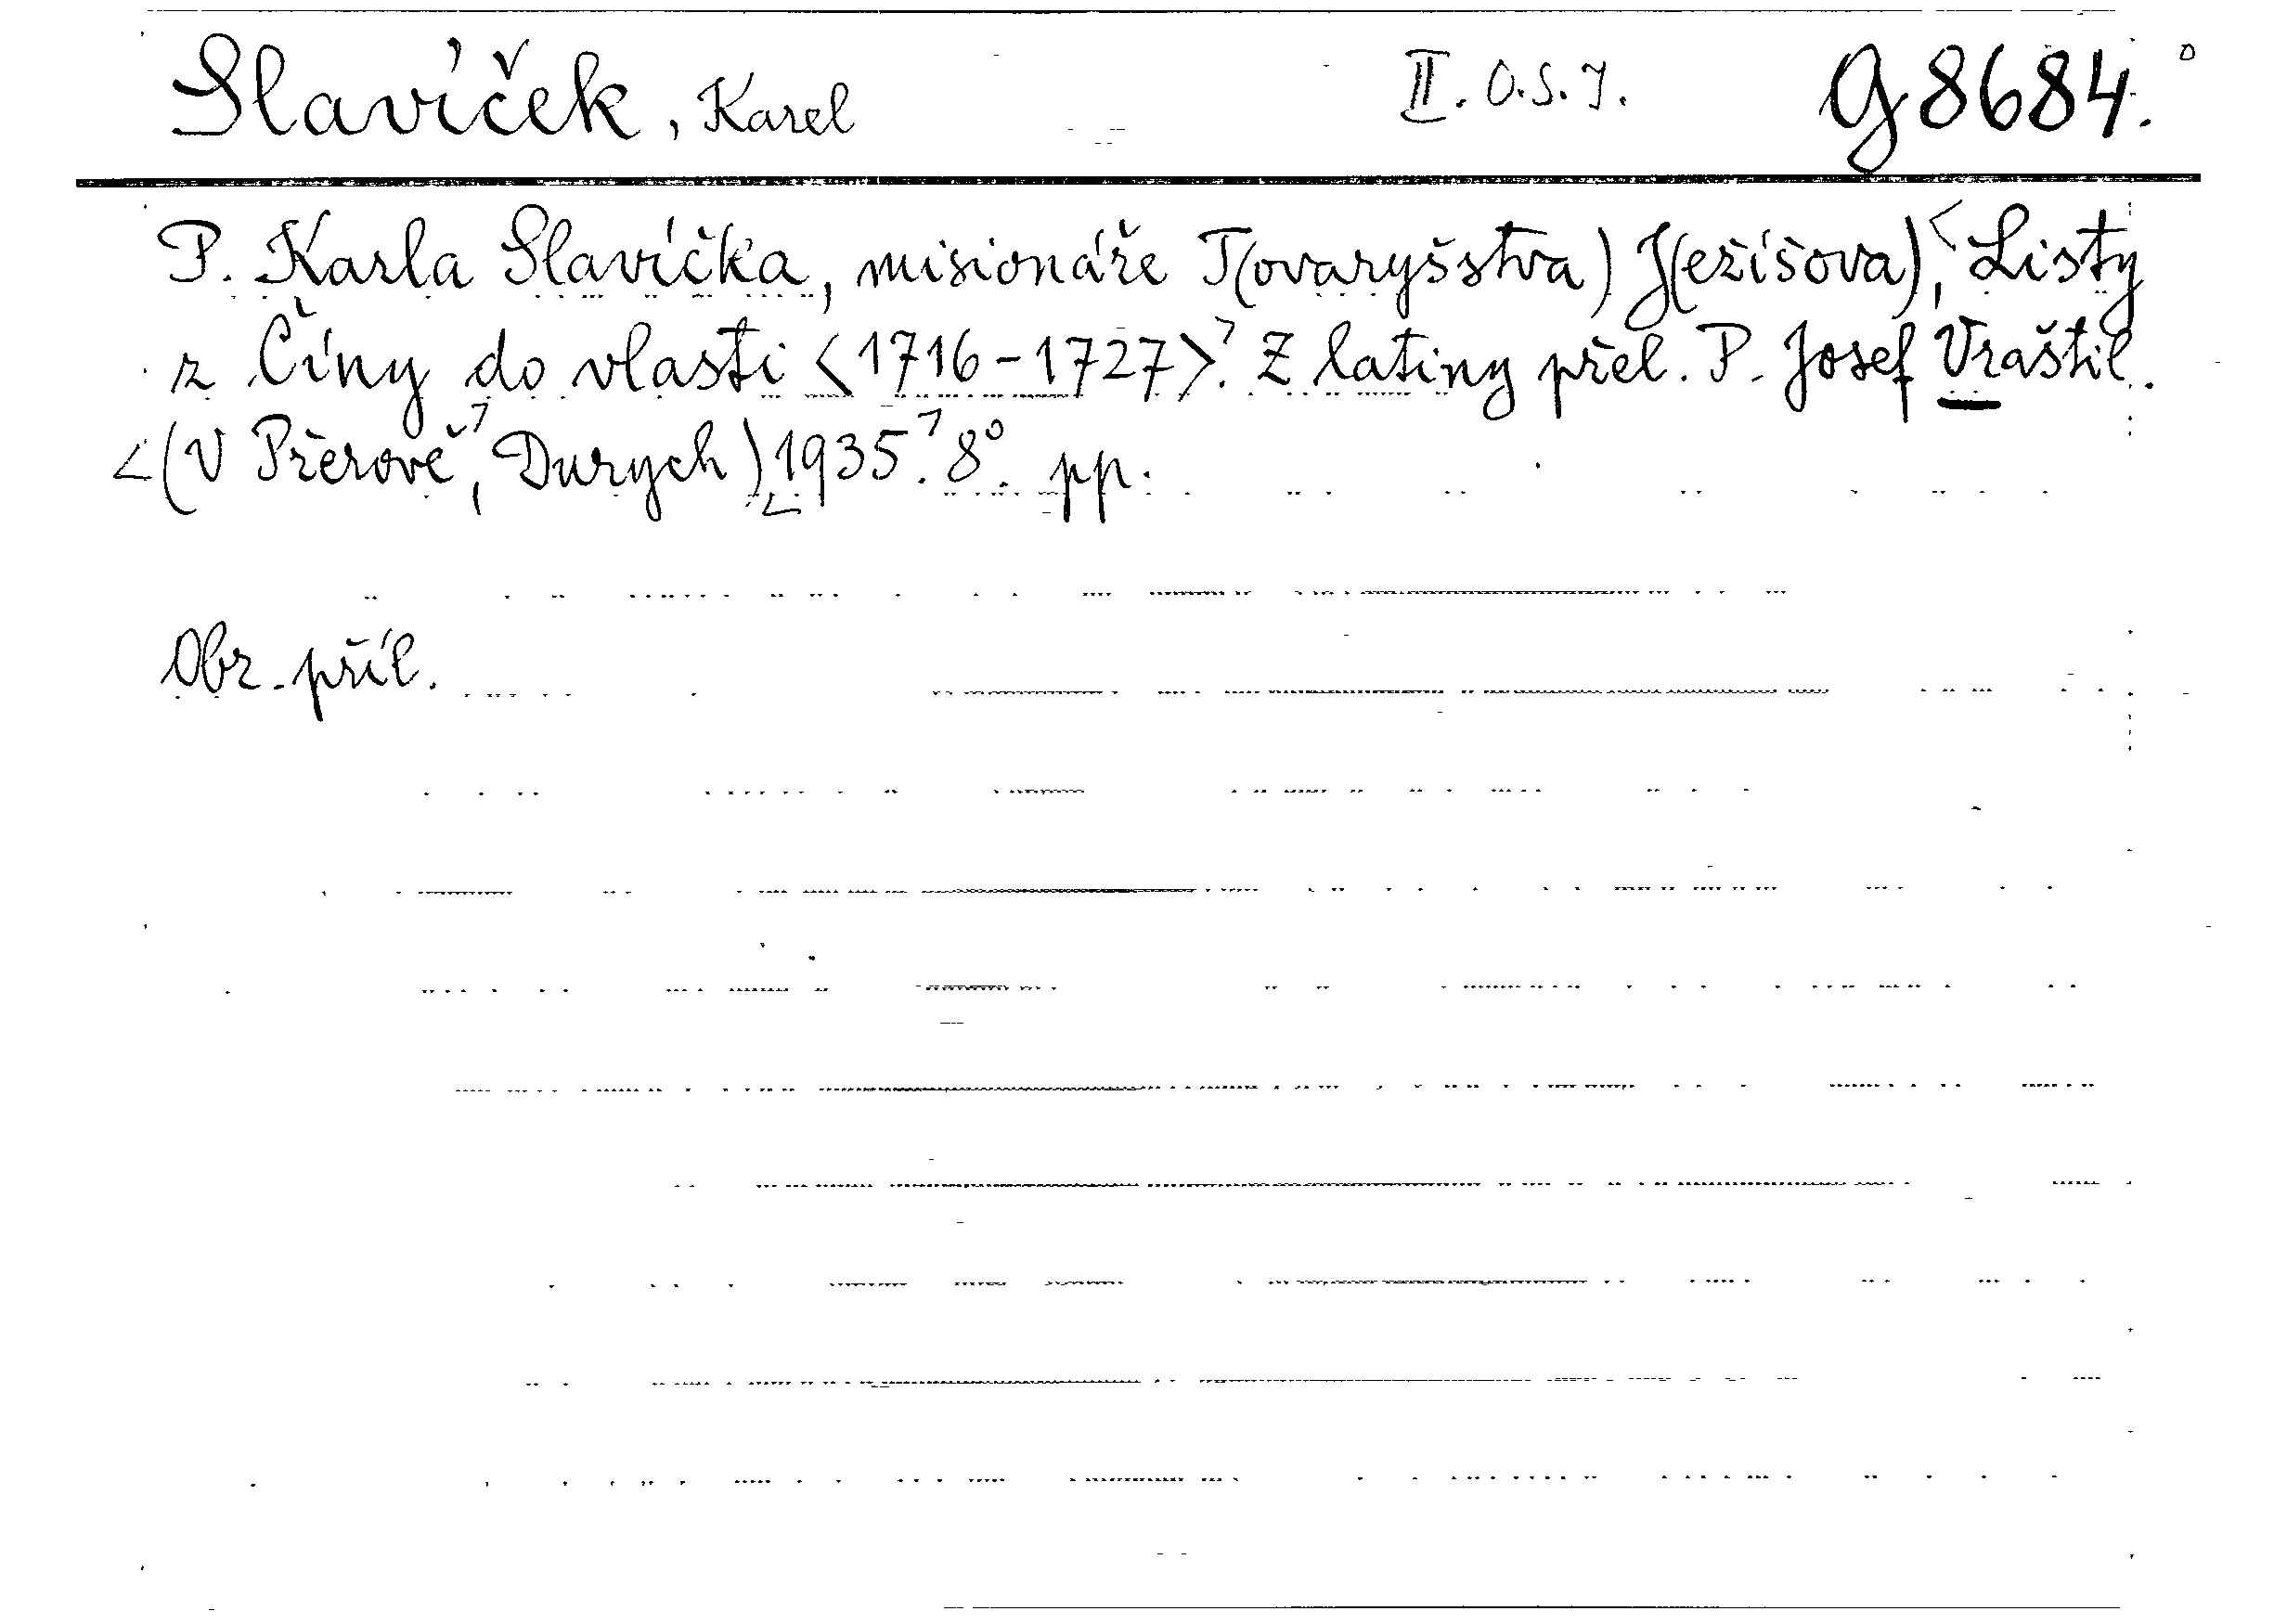 Slavíček, Karel II. O.S.J. G 8684.
P. Karla Slavíčka, misionáře T(ovaryšstva) J(ežíšova), <Listy
z Číny do vlasti <1716-1727>.> Z latiny přel. P. Josef Vraštil.
<(V Přerově>, Durych) <1935.> 8° pp.
Obr. příl.